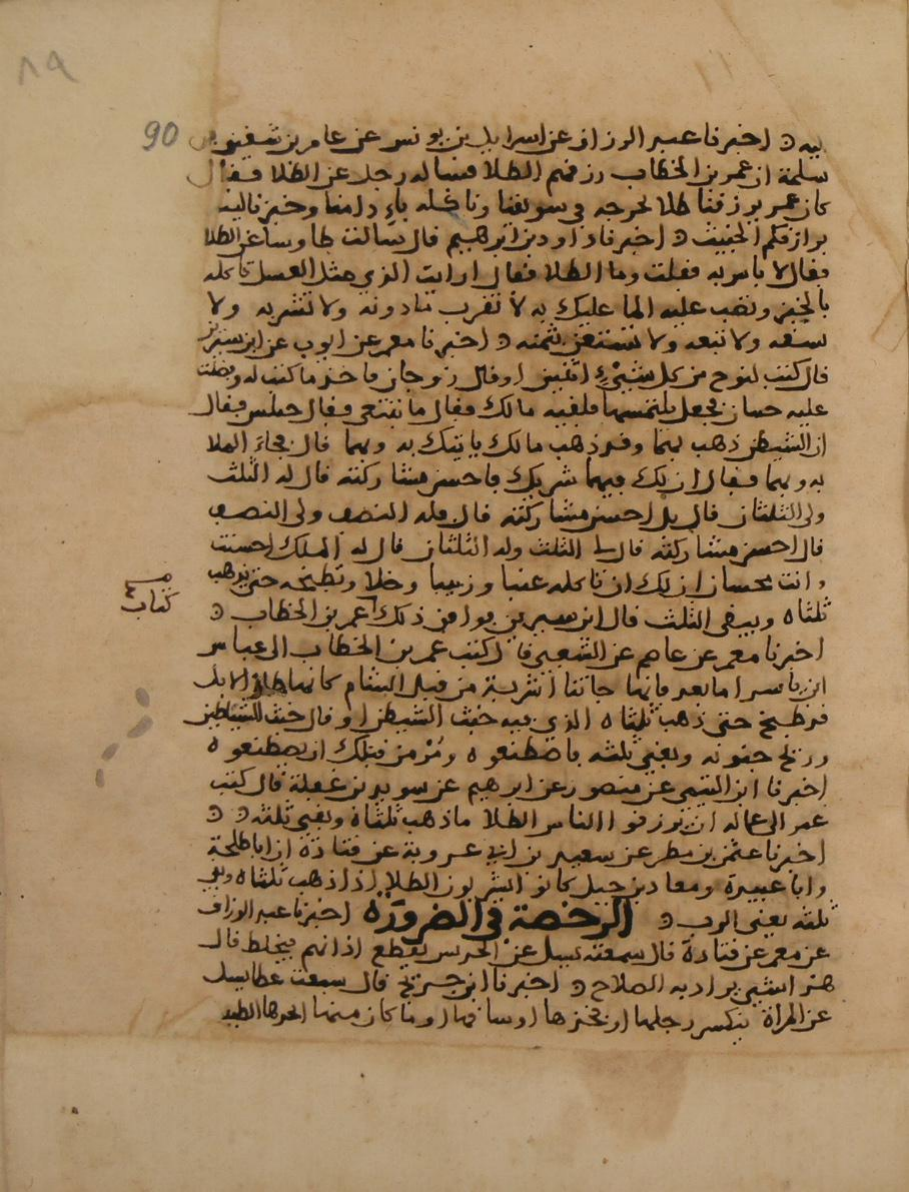 ٨٩
90
فيه ٥ اخبرنا عبد الرزاق عن اسرايل بن يونس عن عامر بن شقيق بن
سلمة ان عمر بن الخطاب رزقهم الطلا فساله رجل عن الطلا فقال
كان عمر يرزقنا طلا نجدحه في سويقنا وناكله بادامنا وخبزنا ليس
براذقكم الخبيث ٥ اخبرنا داود بن ابرهيم قال سالت طاوسا عن الطلا
فقال لا باس به فقلت وما الطلا فقال ارايت الذي مثل العسل تاكله
بالخبز وتصب عليه الما عليك به لا تقرب مادونه ولا تشربه ولا
تسقه ولا تبعه ولا تستعن بثمنه ٥ اخبرنا معمر عن ايوب عن ابن سيرين
قال كتب لنوح من كل شيء اثنين او قال زوجان فاخذ ما كتب له وضلت
عليه حبلتان فجعل يلتمسهما فلقيه ملك فقال ما تبتغي فقال حبلتين فقال
ان الشيطن ذهب بهما وقد ذهب ملك ياتيك به وبهما قال فجاء الملك
به وبهما فقال ان لك فيهما شريك فاحسن مشاركته قال له الثلث
ولي الثلثان قال بل احسن مشاركته قال فله النصف ولي النصف
قال احسن مشاركته قال لي الثلث وله الثلثان قال له الملك احسنت
وانت محسان ان لك ان تاكله عنبا وزبيبا وخلا وتطبخه حتى يذهب
ثلثاه ويبقى الثلث قال ابن سيرين فوافق ذلك كتاب عمر بن الخطاب ٥
كتاب
اخبرنا معمر عن عاصم عن الشعبي قال كتب عمر بن الخطاب الى عمار
ابن ياسر اما بعد فانها جاتنا اشربة من قبل الشام كانها طلا الابل
قد طبخ حتى ذهب ثلثاه الذي فيه خبث الشيطن او قال خبث الشيطن
وريح جنونه وبقي ثلثه فاصطنعوه ومُر من قبلك ان يصطنعوه
اخبرنا ابن التيمي عن منصور عن ابرهيم عن سويد بن غفلة قال كتب
عمر الى عماله ان يرزقوا الناس الطلا ما ذهب ثلثاه وبقي ثلثه ٥ ٥
اخبرنا عثمن بن مطر عن سعيد بن ابي عروبة عن قتادة ان ابا طلحة
وابا عبيدة ومعاذ بن جبل كانوا يشربون الطلا اذا ذهب ثلثاه وبقي
ثلثه يعني الرب ٥ الرخصة في الضرورة اخبرنا عبد الرزاق
عن معمر عن قتادة قال سمعته يسل عن
هذا شيء يراد به الصلاح ٥ اخبرنا ابن جريج قال سمعت عطا يسل
عن المراة تنكسر رجلها او فخذها او ساقها او ما كان منها